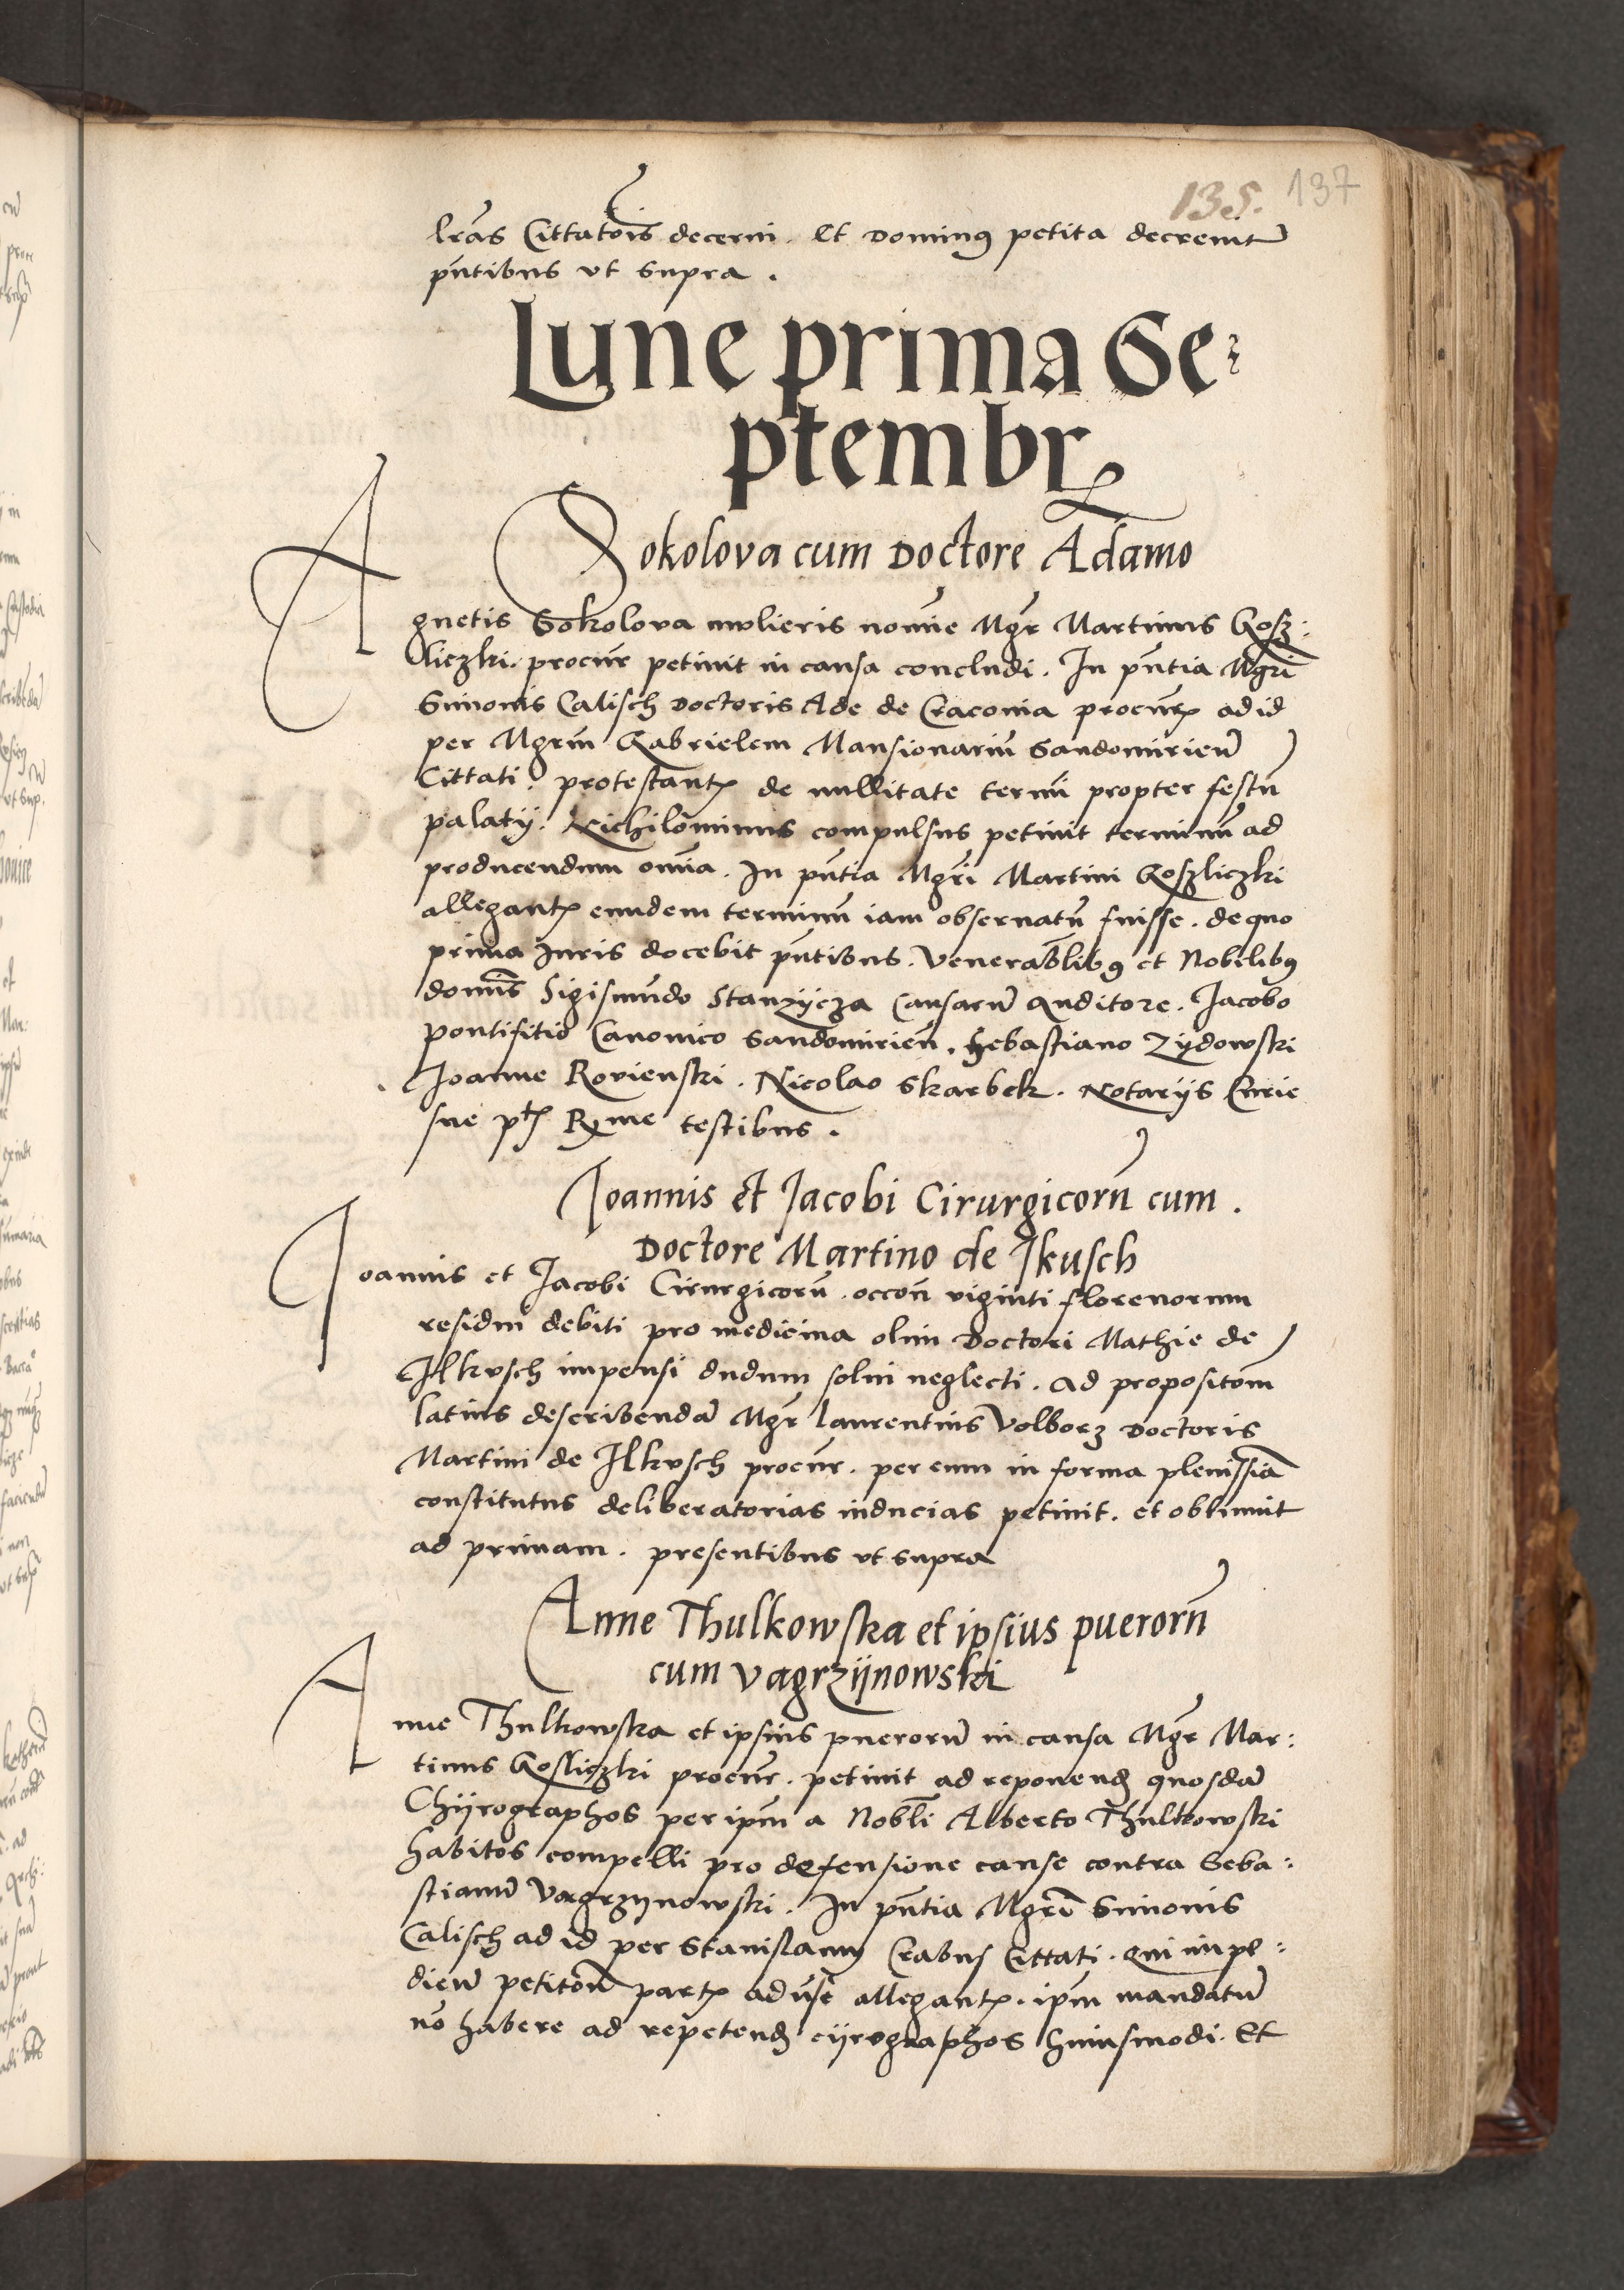 135. 137
lr̄as Cittatōis decerni. Et Dominꝰ petita decreuit
pn̄tibus vt supra.
Lune prima Se⸗
ptembr
Sokolova cum Doctore Adamo
Agnetis Sokolova mulieris noīe Mgr̄ Martinus Gosz:
liczki. procur petiuit in causa concludi. In pn̄tia Mgrī
Simonis Calisch Doctoris Ade de Cracouia procur̄ ad id
per Mgrm̄ Gabrielem Mansionariū Sandomirien̄
Cittati. protestant̄ de nullitate termī propter festū
palatij. Nichilominus compulsus petiuit terminū ad
producendum om̄ia. In pn̄tia Mgrī Martini Goszliczki
allegant̄ eundem terminū iam obseruatū fuisse. de quo
prima Iuris docebit pn̄tibus. Venerablibꝰ et Nobilibꝰ
domīs Sigismūdo Stanzijcza Causarū Auditore. Jacobo
pontifitio Canonico Sandomirien̄. Sebastiano Zijdowski
Joanne Rovienski. Nicolao Skarbek. Notarijs Curie
sue testibus.
Joannis et Jacobi Cirurgicorū cum.
Doctore Martino de Jkusch
Joannis et Jacobi Cirurgicorū. occōn viginti florenorum
residui debiti pro medicina olim Doctori Mathie de
Ilkusch impensi dudum solui neglecti. ad propositōm
latius describendā Mgr̄ Laurentius Volborz Doctoris
Martini de Ilkusch procur. per eum in forma plenissīa
constitutus deliberatorias inducias petiuit. et obtinuit
ad primam. presentibus vt supra
Anne Thulkowska et ipsius puerorū
cum Vagrzijnowski
Anne Thulkowska et ipsius puerorū in causa Mgr̄ Mar:
tinus Gosliczki procur. petiuit ad reponend quosdā
Chijrographos per ipm̄ a Nobli Alberto Thulkowski
habitos compelli pro defensione cause contra Seba:
stianū Vagrzijnowski. In pn̄tia Mgrī Simonis
Calisch ad id per Stanislaum Cittati. Qui impe:
dien̄ petitōn part̄ aduse allegant̄. ipm̄ mandatū
nō habere ad repetend cijrographos huiusmodi. Et